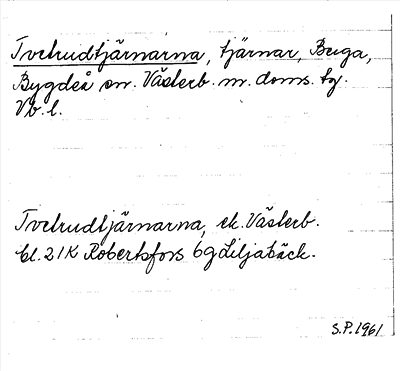 Tvetrudtjärnarna, tjärnar, Buga,
Bygdeå sn. Västerb. m. doms. tg.
Vb. l.
Tvetrudtjärnarna, ek. Västerb.
bl. 21K Robertsfors 6g Liljabäck.
S.P. 1961